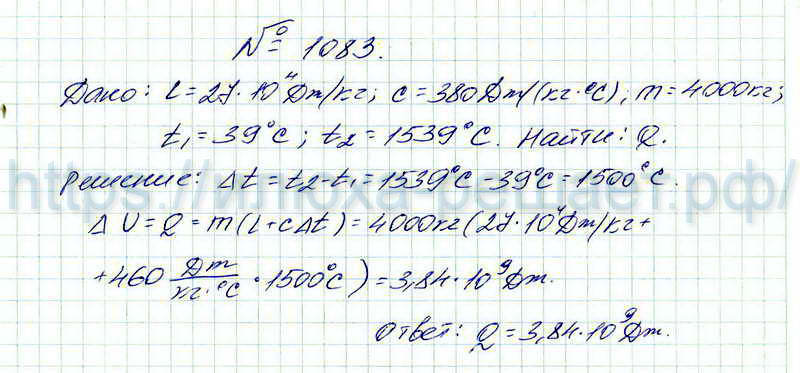 № 1083.
Дано: L = 27·10⁴ Дж/кг; c = 380 Дж/(кг·°C); m = 4000 кг;
t₁ = 39°C; t₂ = 1539°C. Найти: Q.
Решение: Δt = t₂ - t₁ = 1539°C - 39°C = 1500°C.
ΔU = Q = m(L + cΔt) = 4000 кг (27·10⁴ Дж/кг +
+ 460 Дж/кг·°C · 1500°C) = 3,84·10⁹ Дж.
Ответ: Q = 3,84·10⁹ Дж.